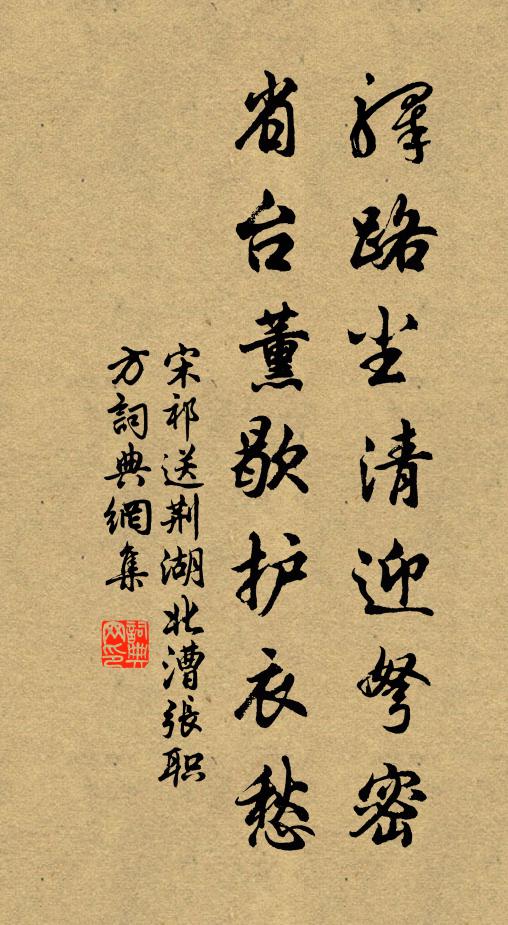 驛路尘清迎弩密
省台薰歇护衣愁
宋祁送荆湖北漕張职
方詞典網集
詞典網印